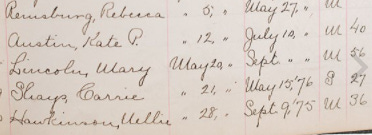 Remsburg, Rebecca " 5, " May 27, " M
Austin, Kate P. " 12, " July 10, " M 40
Lincoln, Mary May 20, " Sept " " M 56
Shays, Carrie " 21, " May 15, '76 S 27
Hawkinson, Nellie " 28, " Sept 9, '75 M 36